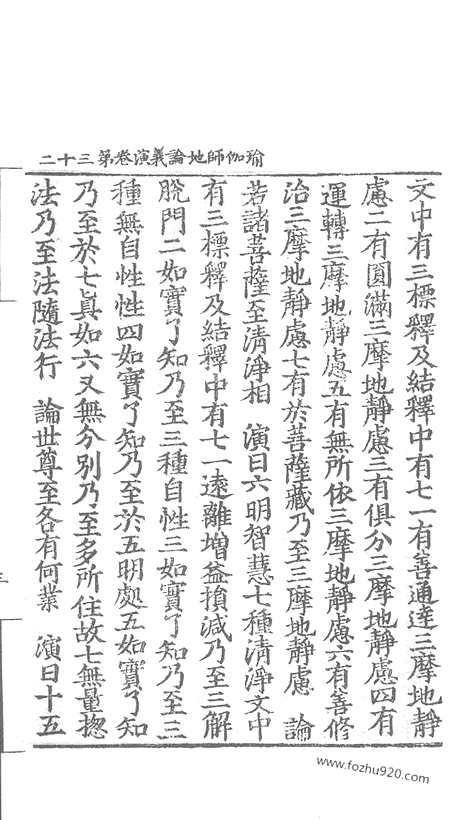 瑜伽師地論義演卷第三十二
文中有三標釋及結釋中有七一有善通達三摩地靜
慮二有圓滿三摩地靜慮三有俱分三摩地靜慮四有
運轉三摩地靜慮五有無所依三摩地靜慮六有善修
治三摩地靜慮七有於菩薩藏乃至三摩地靜慮　論
若諸菩薩至清淨相　演曰六明智慧七種清淨文中
有三標釋及結釋中有七一遠離增益損減乃至三解
脫門二如實了知乃至三種自性三如實了知乃至三
種無自性性四如實了知乃至於五明處五如實了知
乃至於七真如六又無分別乃至多所住故七無量揔
法乃至法隨法行　論世尊至各有何業　演曰十五
www.fozhu920.com